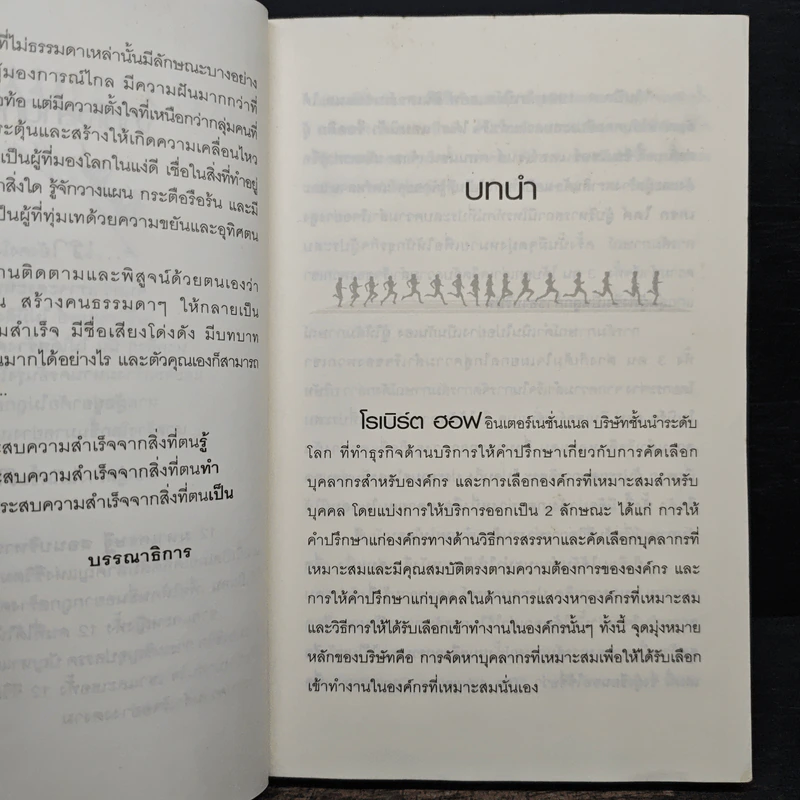 ที่ไม่ธรรมดาเหล่านั้นมีลักษณะบางอย่าง
มองการณ์ไกล มีความฝันมากกว่าที่
แต่มีความตั้งใจที่เหนือกว่ากลุ่มคนที่
และสร้างให้เกิดความเคลื่อนไหว
เป็นผู้ที่มองโลกในแง่ดี เชื่อในสิ่งที่ทำอยู่
สิ่งใด รู้จักวางแผน กระตือรือร้น และมี
เป็นผู้ที่ทุ่มเทด้วยความขยันและอุทิศตน
ติดตามและพิสูจน์ด้วยตนเองว่า
สร้างคนธรรมดาๆ ให้กลายเป็น
สำเร็จ มีชื่อเสียงโด่งดัง มีบทบาท
มากได้อย่างไร และตัวคุณเองก็สามารถ
...
ความสำเร็จจากสิ่งที่ตนรู้
ความสำเร็จจากสิ่งที่ตนทำ
ประสบความสำเร็จจากสิ่งที่ตนเป็น
บรรณาธิการ
บทนำ
โรเบิร์ต ฮอฟ อินเตอร์เนชั่นแนล บริษัทชั้นนำระดับ
โลก ที่ทำธุรกิจด้านบริการให้คำปรึกษาเกี่ยวกับการคัดเลือก
บุคลากรสำหรับองค์กร และการเลือกองค์กรที่เหมาะสมสำหรับ
บุคคล โดยแบ่งการให้บริการออกเป็น 2 ลักษณะ ได้แก่ การให้
คำปรึกษาแก่องค์กรทางด้านวิธีการสรรหาและคัดเลือกบุคลากรที่
เหมาะสมและมีคุณสมบัติตรงตามความต้องการขององค์กร และ
การให้คำปรึกษาแก่บุคคลในด้านการแสวงหาองค์กรที่เหมาะสม
และวิธีการให้ได้รับเลือกเข้าทำงานในองค์กรนั้นๆ ทั้งนี้ จุดมุ่งหมาย
หลักของบริษัทคือ การจัดหาบุคลากรที่เหมาะสมเพื่อให้ได้รับเลือก
เข้าทำงานในองค์กรที่เหมาะสมนั่นเอง